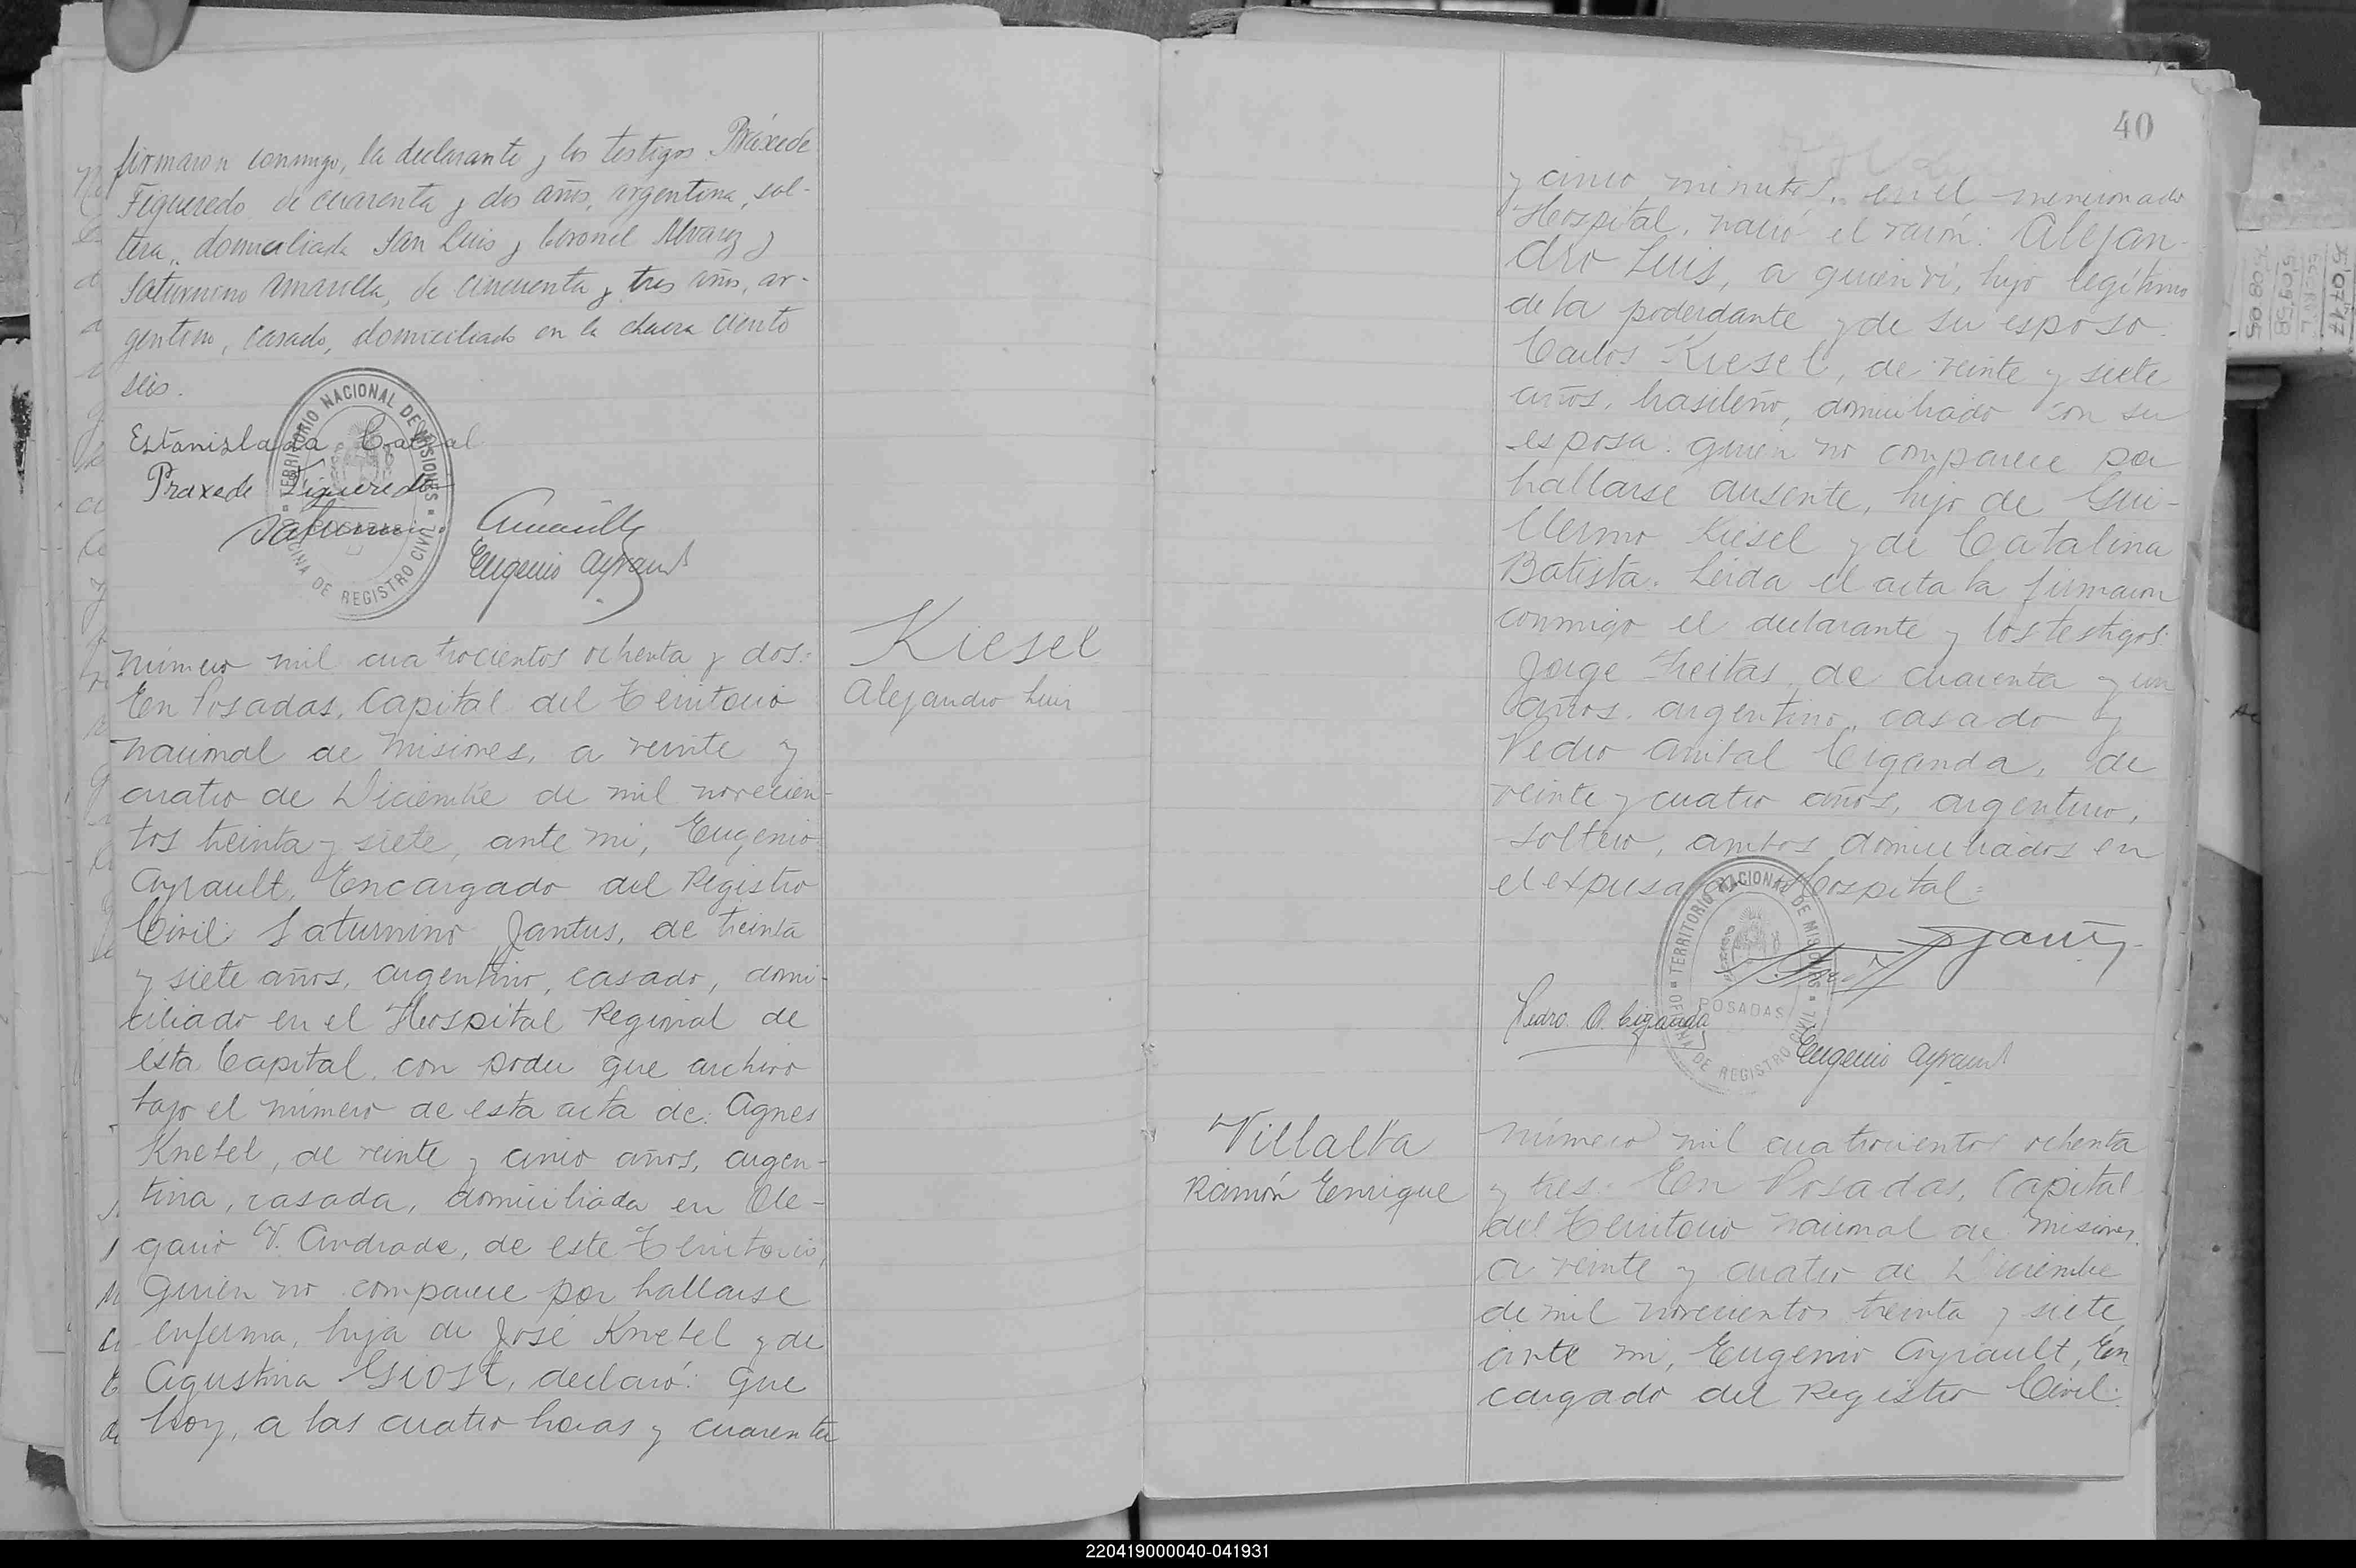 firmaron conmigo, la declarante y los testigos Práxede
Figueredo de cuarenta y dos años, argentina, sol-
tera, domiciliada San Luis y Coronel Alvarez y
Saturnino Amarilla, de cincuenta y tres años, ar-
gentino, casado, domiciliado en la chacra ciento
seis.
TERRITORIO NACIONAL DE MISIONES
OFICINA DE REGISTRO CIVIL
POSADAS
Estanislada Cabral
Praxede Figueredo
Saturnino Amarilla
Eugenio Ayrault
Kiesel
Alejandro Luis
Número mil cuatrocientos ochenta y dos:
En Posadas, Capital del Territorio
Nacional de Misiones, a veinte y
cuatro de Diciembre de mil novecien-
tos treinta y siete, ante mi, Eugenio
Ayrault, Encargado del Registro
Civil: Saturnino Jantus, de treinta
y siete años, argentino, casado, domi-
ciliado en el Hospital Regional de
ésta Capital, con poder que archivo
bajo el número de esta acta de: Agnes
Knebel, de veinte y cinco años, argen-
tina, casada, domiciliada en Ole-
gario V. Andrade, de este Territorio,
quien no comparece por hallarse
enferma, hija de José Knebel y de
Agustina Giost, declaró: Que
hoy, a las cuatro horas y cuarenta
40
y cinco minutos, en el mencionado
Hospital, nació el varón: Alejan-
dro Luis, a quien vi, hijo legítimo
de la poderdante y de su esposo
Carlos Kiesel, de veinte y siete
años, brasileño, domiciliado con su
esposa quien no comparece por
hallarse ausente, hijo de Gui-
llermo Kiesel y de Catalina
Batista. Leida el acta la firmaron
conmigo el declarante y los testigos:
Jorge Freitas, de cuarenta y un
años, argentino, casado y
Pedro Anibal Ciganda, de
veinte y cuatro años, argentino,
soltero, ambos domiciliados en
el expresado Hospital=
TERRITORIO NACIONAL DE MISIONES
OFICINA DE REGISTRO CIVIL
POSADAS
Pedro A. Ciganda
Eugenio Ayrault
Villalba
Ramón Enrique
Número mil cuatrocientos ochenta
y tres: En Posadas, Capital
del Territorio Nacional de Misiones,
a veinte y cuatro de Diciembre
de mil novecientos treinta y siete,
ante mi, Eugenio Ayrault, En
cargado del Registro Civil:
220419000040-041931